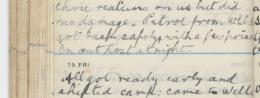 three realiuns on us but did
no damage. Patrol from Wells
got back safely with a few prisoners
En out host at night.
15 FRI
All got ready early and
shifted camp; came to Well